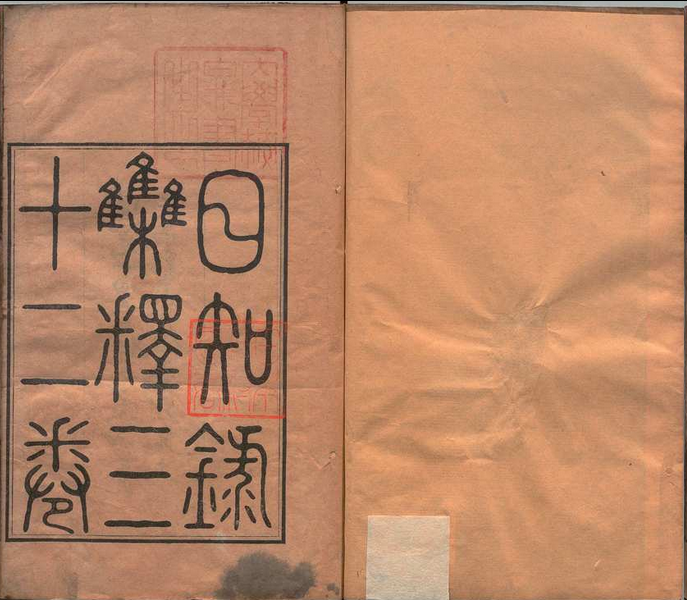 日知錄
雧釋三
十二卷